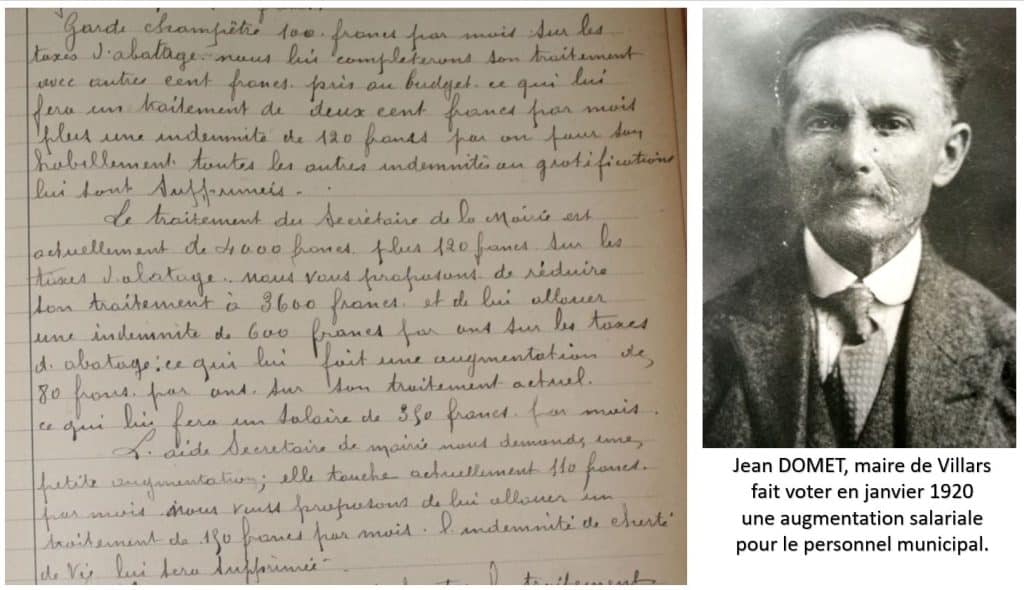 Garde champêtre 100 francs par mois sur les
taxes d'abatage. nous lui complèterons son traitement
avec autres cent francs pris au budget. ce qui lui
fera un traitement de deux cent francs par mois
plus une indemnité de 120 francs par an pour son
habillement. toutes les autres indemnités ou gratifications
lui sont supprimeis.
Le traitement du Secrétaire de la Mairie est
actuellement de 4000 francs. plus 120 francs sur les
taxes d'abatage. nous vous proposons de réduire
son traitement à 3600 francs. et de lui allouer
une indemnité de 600 francs par ans sur les taxes
d. abatage: ce qui lui fait une augmentation de
80 francs. par ans. sur son traitement actuel.
ce qui lui fera un salaire de 350 francs. par mois.
L. aide Secretaire de mairie nous demande une
petite augmentation; elle touche actuellement 110 francs.
par mois nous vous proposons de lui allouer un
traitement de 150 francs par mois. l. indemnité de cherté
de vie lui sera supprimée.
traitement
Jean DOMET, maire de Villars
fait voter en janvier 1920
une augmentation salariale
pour le personnel municipal.